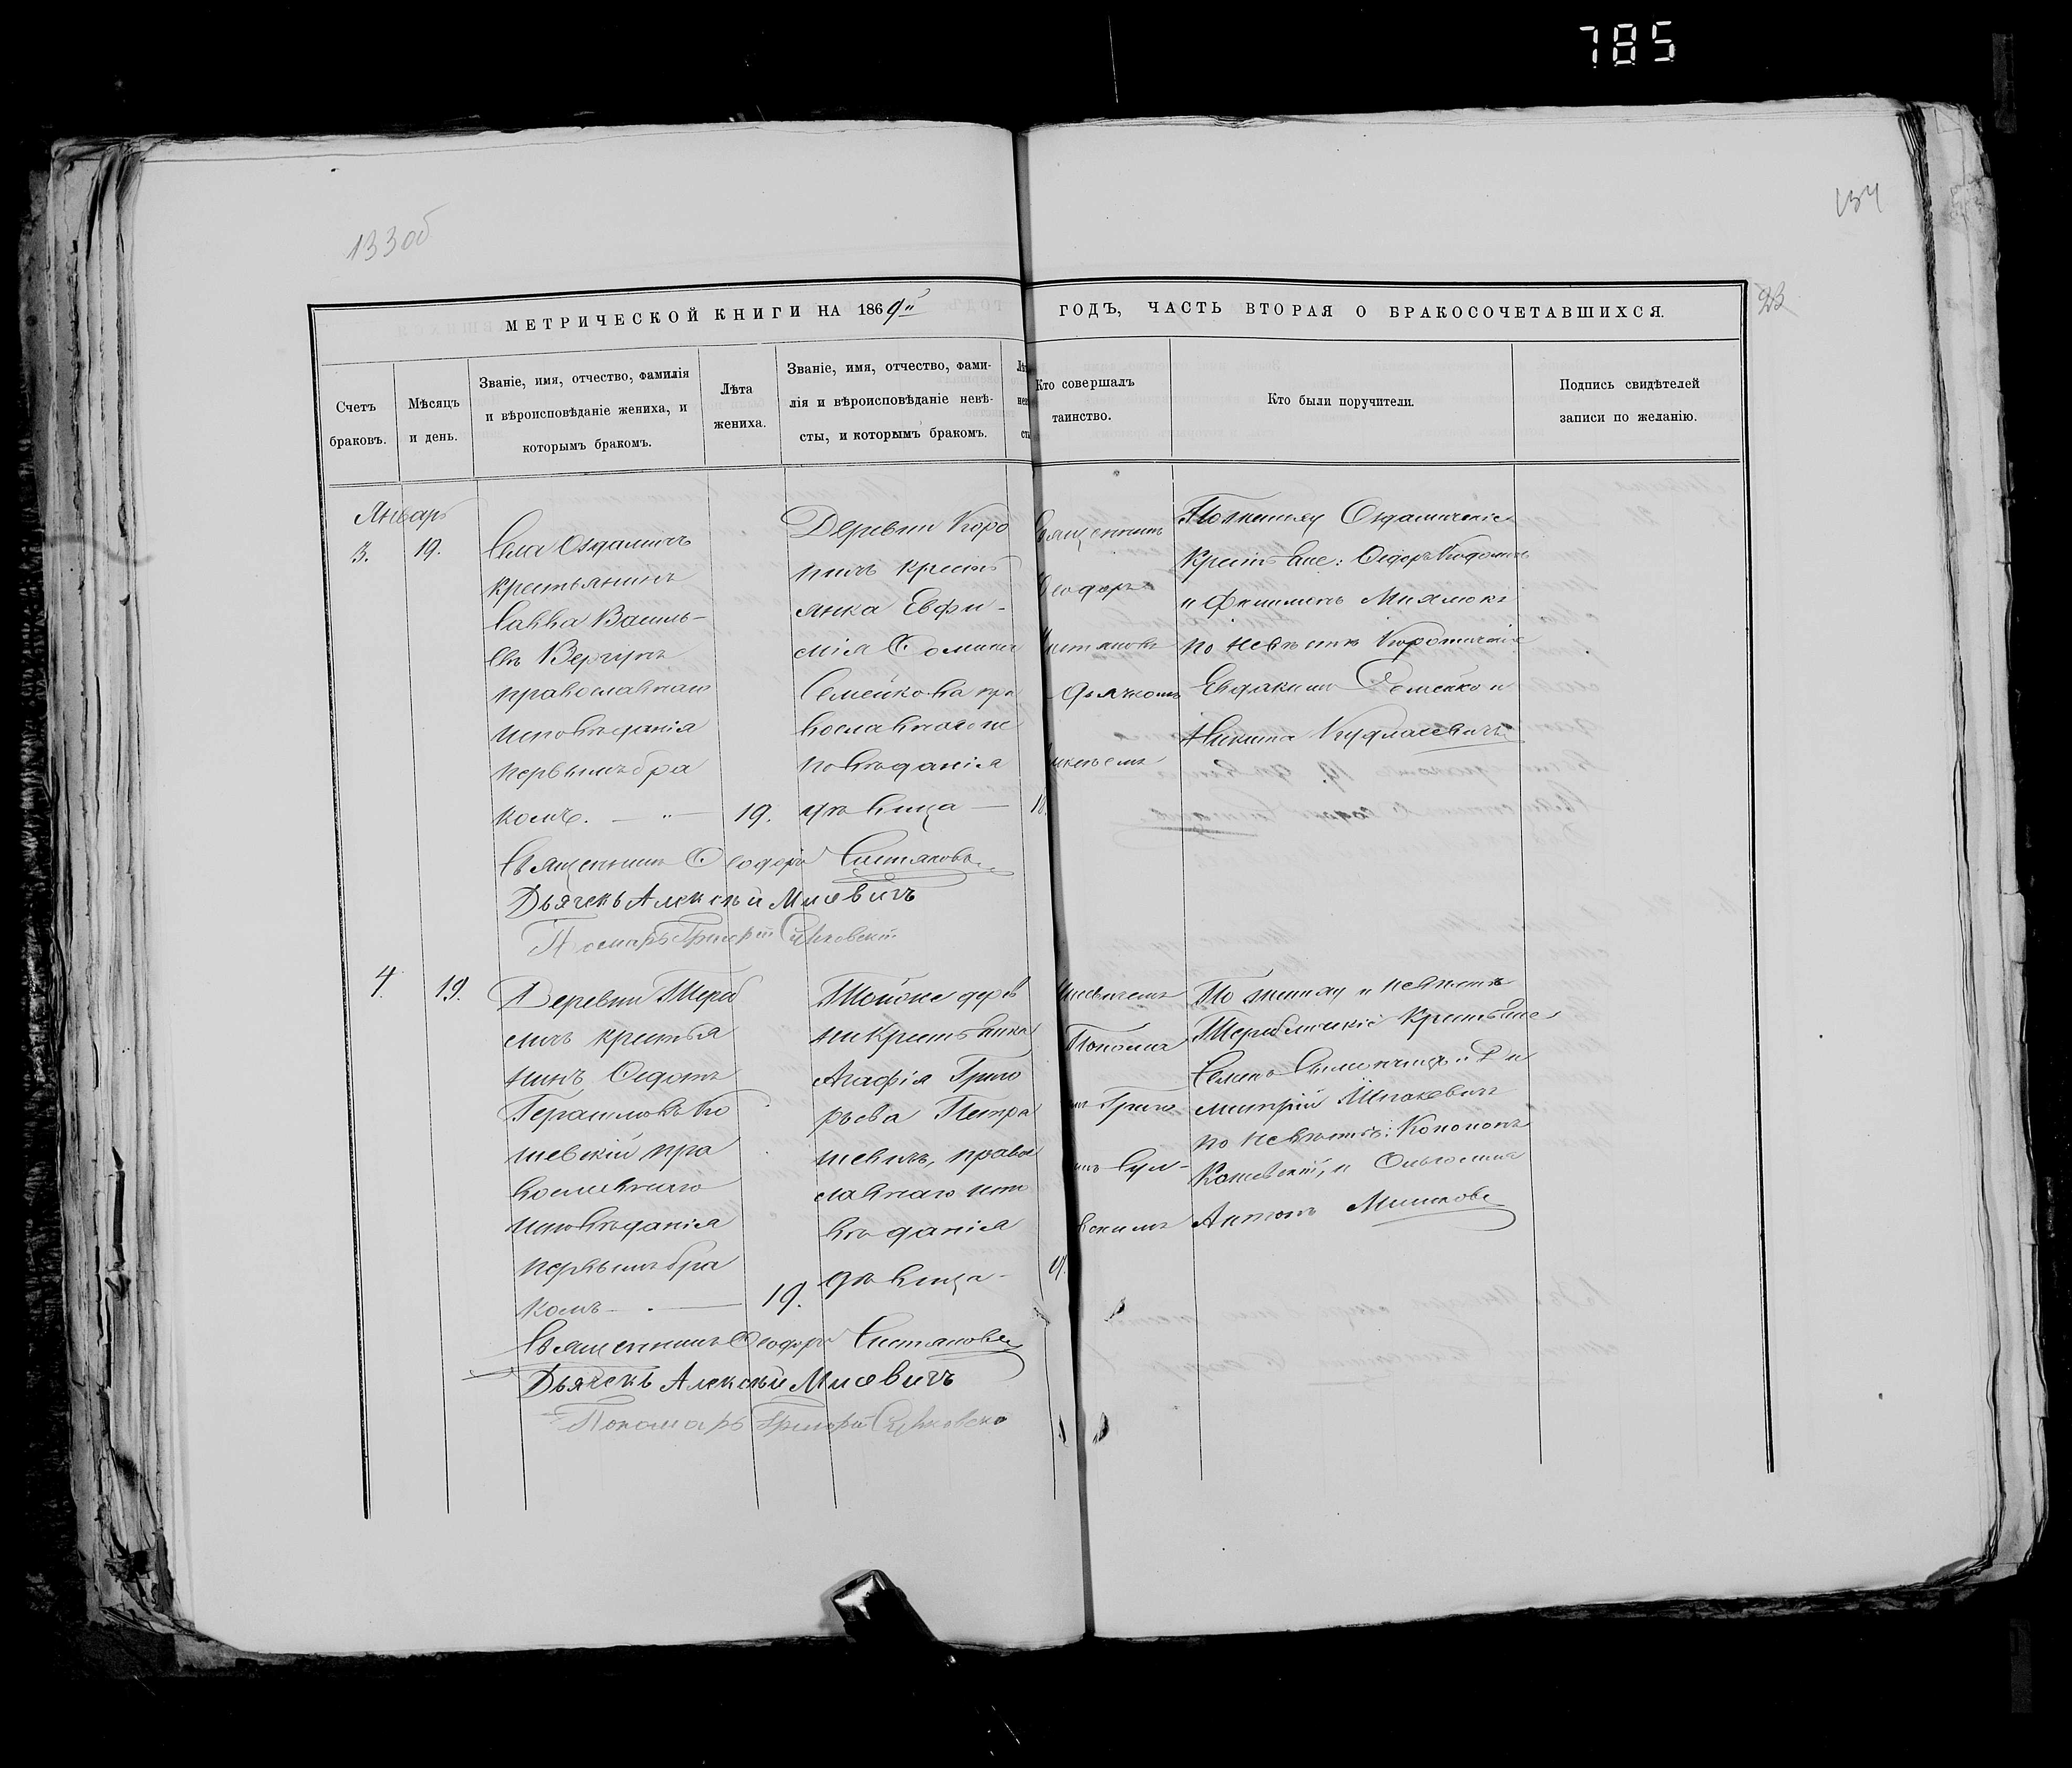 785
133об
134
23
МЕТРИЧЕСКОЙ КНИГИ НА 1869й
ГОДЪ, ЧАСТЬ ВТОРАЯ О БРАКОСОЧЕТАВШИХСЯ.
Счетъ
браковъ.
Мѣсяцъ
и день.
Званіе, имя, отчество, фамилія
и вѣроисповѣданіе жениха, и
которымъ бракомъ.
Лѣта
жениха.
Званіе, имя, отчество, фами-
лія и вѣроисповѣданіе невѣ-
сты, и которымъ бракомъ.
Кто совершалъ
таинство.
Кто были поручители.
Подпись свидѣтелей
записи по желанію.
Январь
3.
19.
Села Оздамичъ
крестьянинъ
Савва Василь-
евъ Вергунъ
православнаго
исповѣданія
первымъ бра
комъ. — „ —
19.
Деревни Коро
тичъ кресть
янка Евфи-
мія Ѳомина
Семейкова пра
вославнаго ис
повѣданія
дѣвица —
18.
Священникъ
Ѳеодоръ
дьячкомъ
Алексѣемъ
По жениху Оздамичскіе
Крестьяне: Ѳедоръ
и Филимонъ
по невѣстѣ Коротичскіе
Евдокимъ Семейко и
Никита Кудлачевичъ
Священникъ Ѳеодоръ
Дьячекъ Алексѣй Мисевичъ
Пономарь Григорій
4.
19.
Деревни Тереб
личъ крестья
нинъ Ѳедотъ
Герасимовъ Ко
шевскій пра
вославнаго
исповѣданія
первымъ бра
комъ — . —
19.
Тойже дерев
ни Крестьянка
Агафія Григо
рьева Петра
шевичъ, право
славнаго испо
вѣданія
дѣвица —
Мисевичемъ
Понома
Григо
По жениху и невѣстѣ
Тереблическіе Крестьяне
Семенъ и Ди
митрій Шпаковичъ
по невѣстѣ: Кононъ
Кошевскій, и
Антонъ
Священникъ Ѳеодоръ
Дьячекъ Алексѣй Мисевичъ
Пономарь Григорій